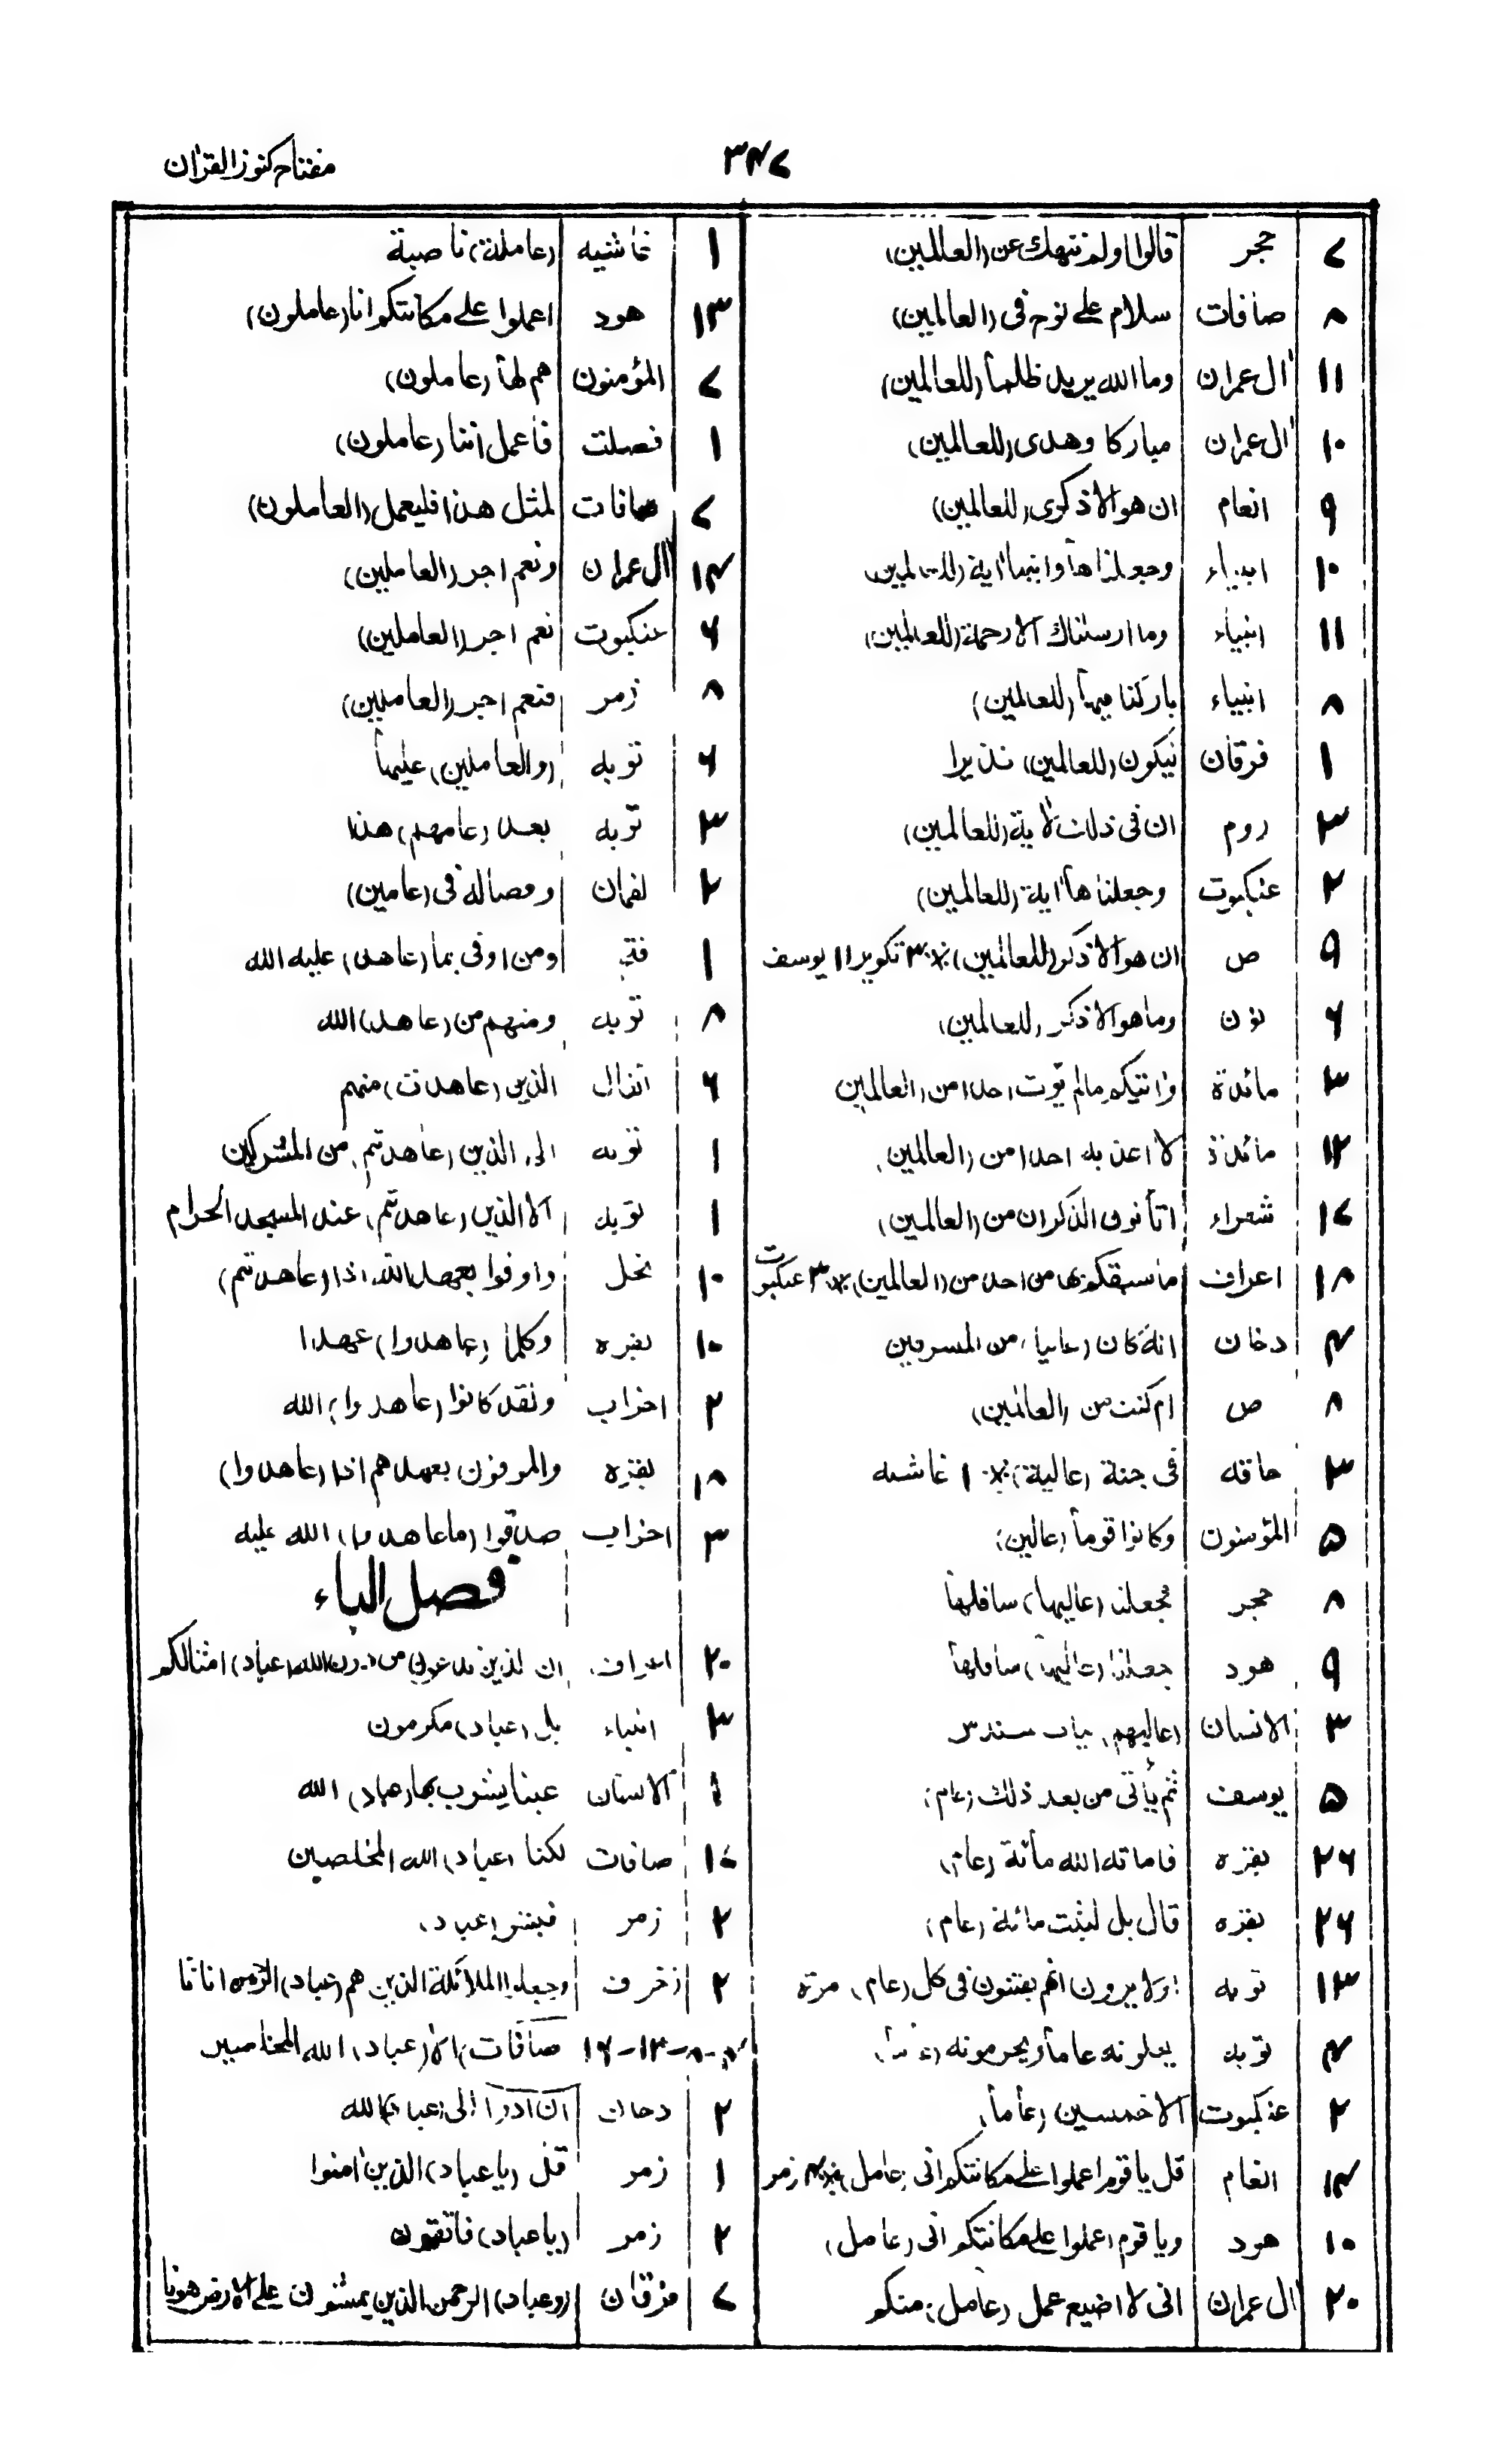 مفتاح كنوز القرآن
٣٤٧
٧ حجر قالوا اولم ننهك عن (العالمين)
٨ صافات سلام على نوح فى (العالمين)
١١ آل عمران وما الله يريد ظلماً (للعالمين)
١٠ آل عمران مباركا وهدى (للعالمين)
٩ انعام ان هو الا ذكرى (للعالمين)
١٠ انبياء وجعلناها وابنها آية (للعالمين)
١١ انبياء وما ارسلناك الا رحمة (للعالمين)
٨ انبياء باركنا فيها (للعالمين)
١ فرقان ليكون (للعالمين) نذيرا
٣ روم ان فى ذلك لآية (للعالمين)
٢ عنكبوت وجعلناها آية (للعالمين)
٩ ص ان هو الا ذكر (للعالمين) تكوير ١١ يوسف
٦ نون وما هو الا ذكر (للعالمين)
٣ مائدة وآتيكم مالم يؤت احدا من (العالمين)
١٢ مائدة لا اعذبه احدا من (العالمين)
١٧ شعراء اتأتون الذكران من (العالمين)
١٨ اعراف ما سبقكم بها من احد من (العالمين) ٣ عنكبوت
٤ دخان انه كان (عاليا) من المسرفين
٨ ص ام كنت من (العالين)
٣ حاقه فى جنة (عالية) ١ غاشيه
٥ المؤمنون وكانوا قوماً (عالين)
٨ حجر فجعلنا (عاليها) سافلها
٩ هود جعلنا (عاليها) سافلها
٣ الانسان (عاليهم) ثياب سندس
٥ يوسف ثم يأتى من بعد ذلك (عام)
٢٦ بقره فاماته الله مائة (عام)
٢٦ بقره قال بل لبثت مائة (عام)
١٣ توبه اولا يرون انهم يفتنون فى كل (عام) مرة
٤ توبه يحلونه عاماً ويحرمونه (عاماً)
٢ عنكبوت الا خمسين (عاماً)
١٤ انعام قل يا قوم اعملوا على مكانتكم انى (عامل) ٤ زمر
١٠ هود ويا قوم اعملوا على مكانتكم انى (عامل)
٢٠ آل عمران انى لا اضيع عمل (عامل) منكم
١ غاشيه (عاملة) ناصبة
١٣ هود اعملوا على مكانتكم انا (عاملون)
٧ المؤمنون هم لها (عاملون)
١ فصلت فاعمل اننا (عاملون)
٧ صافات لمثل هذا فليعمل (العاملون)
١٤ آل عمران ونعم اجر (العاملين)
٦ عنكبوت نعم اجر (العاملين)
٨ زمر فنعم اجر (العاملين)
٦ توبه (والعاملين) عليها
٣ توبه بعد (عامهم) هذا
٢ لقمان وفصاله فى (عامين)
١ فتح ومن اوفى بما (عاهد) عليه الله
٨ توبه ومنهم من (عاهد) الله
٦ انفال الذين (عاهدت) منهم
١ توبه الى الذين (عاهدتم) من المشركين
١ توبه الا الذين (عاهدتم) عند المسجد الحرام
١٠ نحل واوفوا بعهد الله اذا (عاهدتم)
١٠ بقره وكلما (عاهدوا) عهدا
٢ احزاب ولقد كانوا (عاهدوا) الله
١٨ بقره والموفون بعهدهم اذا (عاهدوا)
٣ احزاب صدقوا (ما عاهدوا) الله عليه
فصل الباء
٢٠ اعراف ان الذين تدعون من دون الله (عباد) امثالكم
٣ انبياء بل (عباد) مكرمون
١ الانسان عينا يشرب بها (عباد) الله
١٧ صافات لكنا (عباد) الله المخلصين
٢ زمر فبشر (عباد)
٢ زخرف وجعلوا الملائكة الذين هم (عباد) الرحمن اناثا
٨-١٢-١٦ صافات الا (عباد) الله المخلصين
٢ دخان ان ادوا الى (عباد) الله
١ زمر قل (يا عباد) الذين آمنوا
٢ زمر (يا عباد) فاتقون
٧ فرقان (وعباد) الرحمن الذين يمشون على الارض هونا